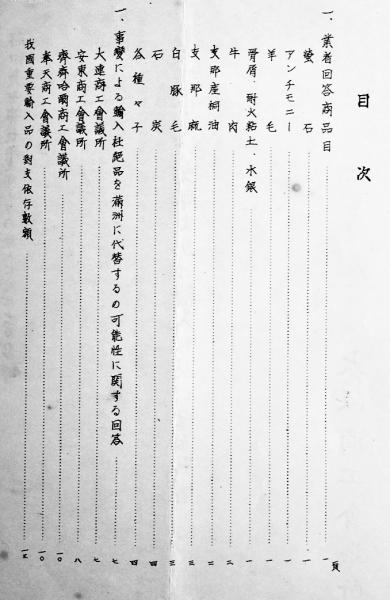 目次
頁
一、業者回答商品目……一
螢石……一
アンチモニー……一
羊毛……一
骨屑、耐火粘土、水銀……一
牛肉……二
支那産桐油……二
支那麻……三
白豚毛……三
石炭……四
各種々子……四
一、事變による輸入杜絶品を滿洲に代替するの可能性に關する回答……七
大連商工會議所……七
安東商工會議所……八
齊齊哈爾商工會議所……一〇
奉天商工會議所……一〇
我國重要輸入品の對支依存數額……一五